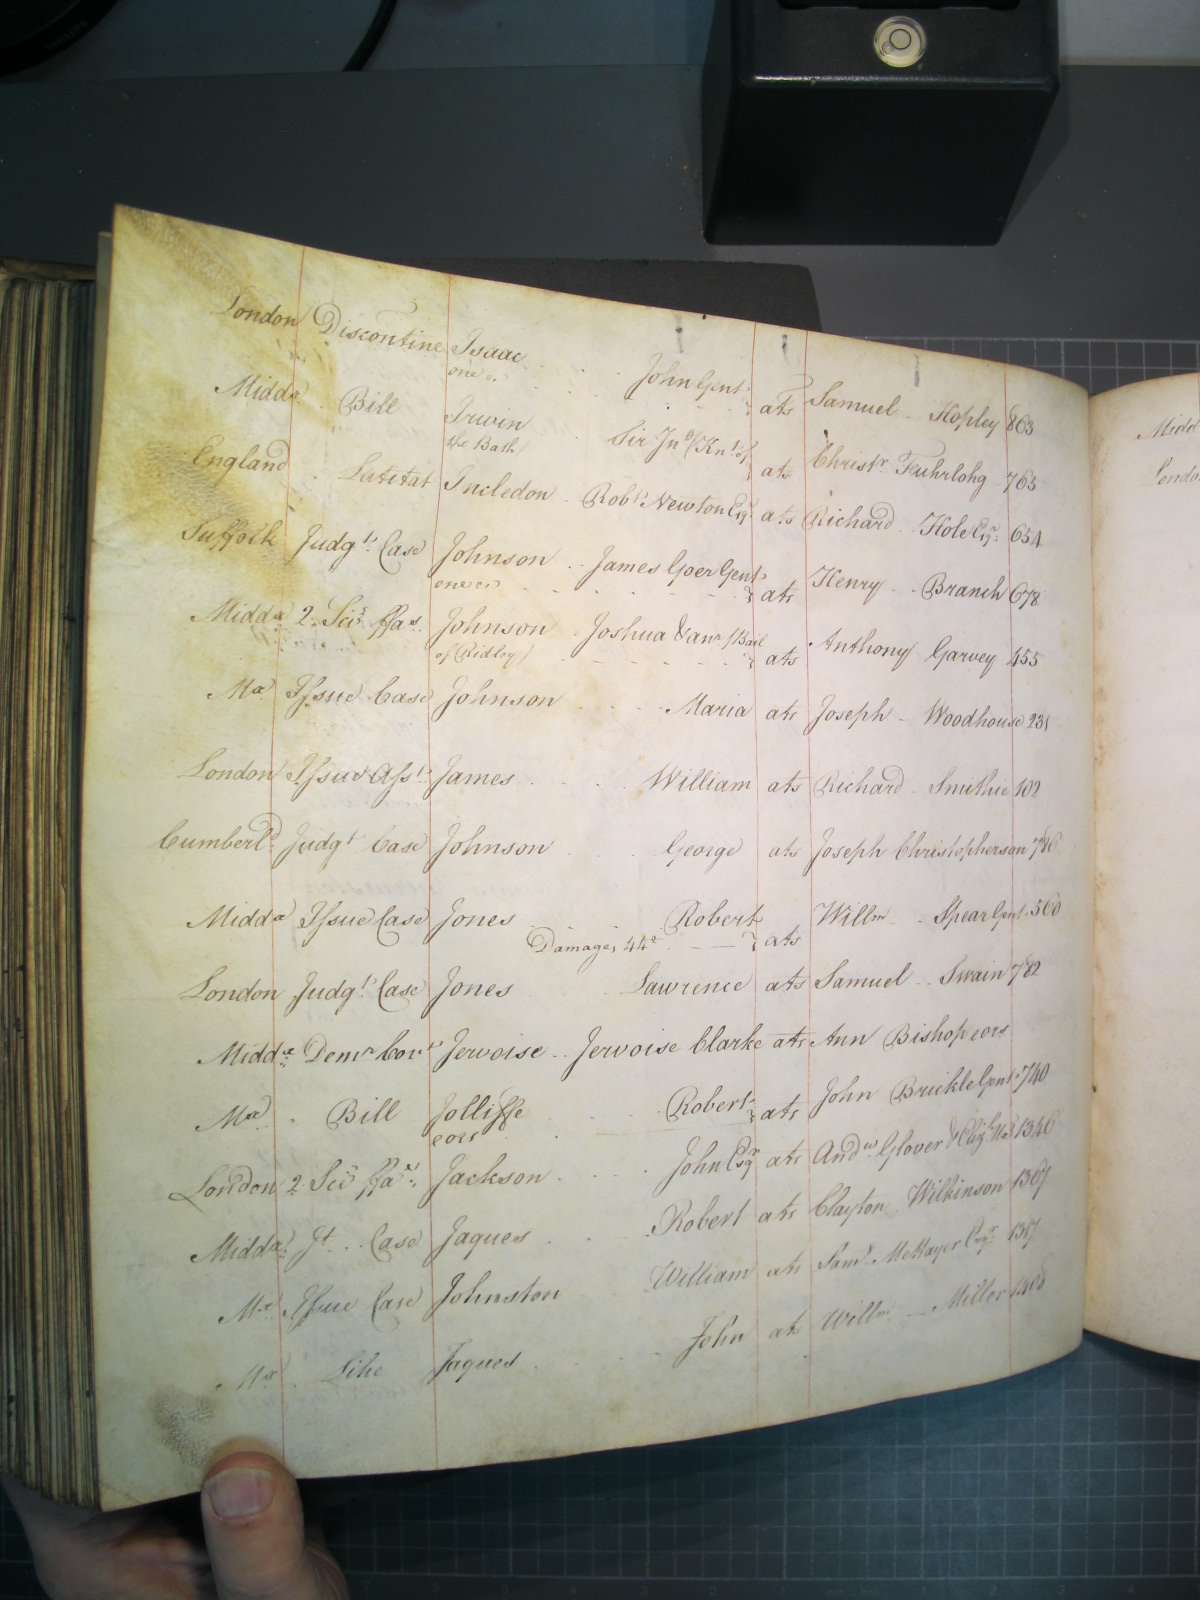 London Discontine Isaac John Gent
one &c. } ats Samuel Hopley 863
Midd^x Bill Irwin Sir Jn^o (Kn^t of
the Bath) } ats Christ^r. Fuhrlohg 765
England Latitat Incledon Rob^t. Newton Esq^r. ats Richard Hole Esq^r. 654
Suffolk Judg^t. Case Johnson James Goer Gent
one &c } ats Henry Branch 678
Midd^x 2. Sci^s. ffa^s. Johnson Joshua & an^r. (Bail
of (Ridley) } ats Anthony Garvey 455
M^x Issue Case Johnson Maria ats Joseph Woodhouse 231
London Issue Ass^t. James William ats Richard Smithie 102
Cumberl^d. Judg^t Case Johnson George ats Joseph Christopherson 786
Midd^x Issue Case Jones Robert
Damages 44^£ } ats Will^m Spear Gent. 560
London Judg^t. Case Jones Lawrence ats Samuel Swain 782
Midd^x Dem^r Cov^t. Jervoise Jervoise Clarke ats Ann Bishop eors
M^x. Bill Jolliffe Robert
eors } ats John Brickle Gent. 740
London 2 Sci^s ffa^s. Jackson John Esq^r ats And^w. Glover & Eliz^th 1346
Midd^x. J^t. Case Jaques Robert ats Clayton Wilkinson 1367
M^x. Issue Case Johnston William ats Sam^l. McKayer Esq^r. 1317
M^x. Like Jaques John ats Will^m. Miller 1408
Midd
London